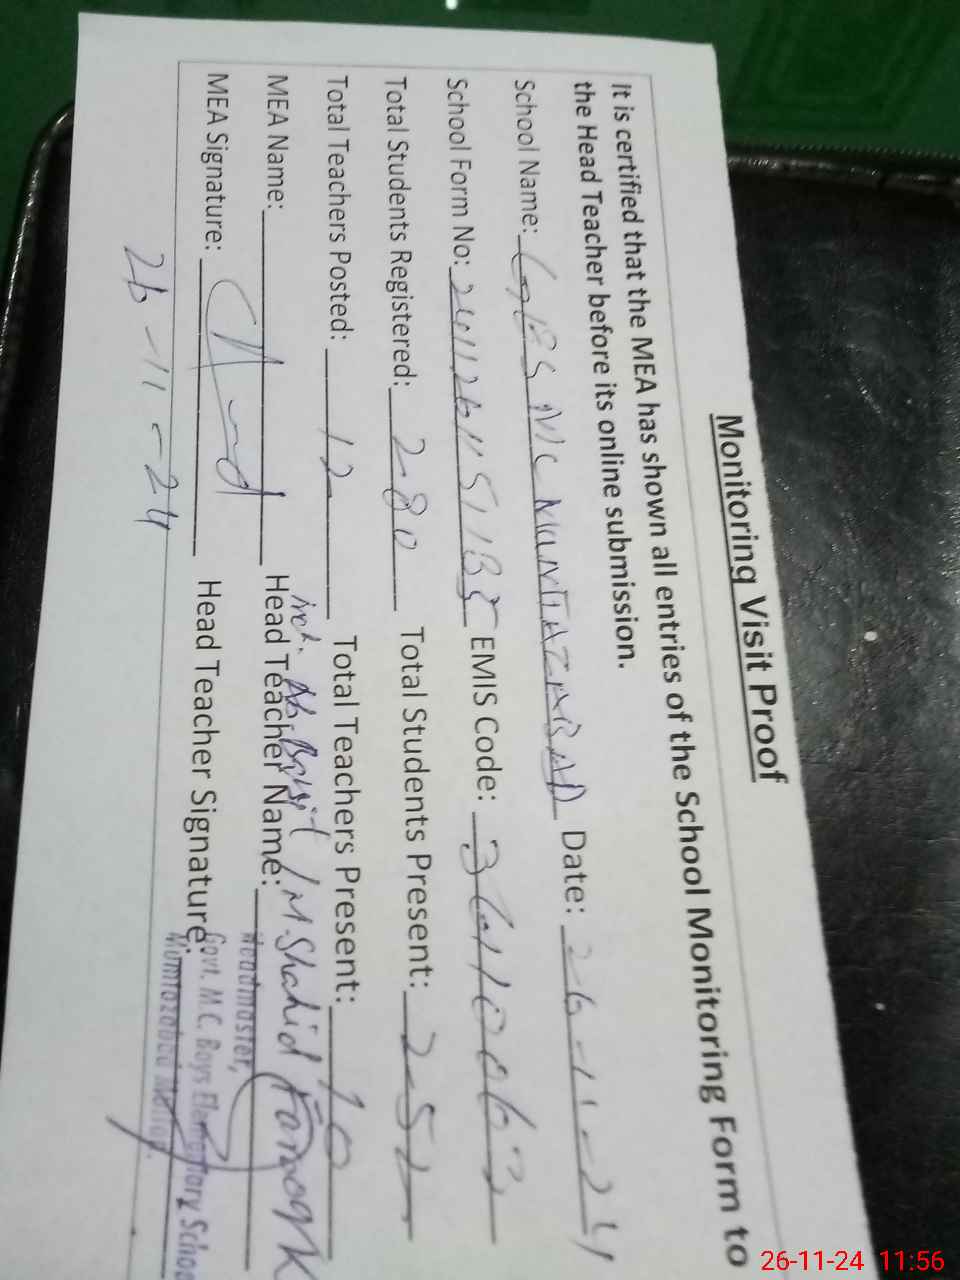 Monitoring Visit Proof
It is certified that the MEA has shown all entries of the School Monitoring Form to
the Head Teacher before its online submission.
School Name: GBES MC MUMTAZABAD Date: 26-11-24
School Form No: EMIS Code:
Total Students Registered: 280 Total Students Present: 252
Total Teachers Posted: 12 Total Teachers Present: 10
MEA Name: Head Teacher Name: M. Shahid Farooq
MEA Signature: Head Teacher Signature:
26-11-24
Headmaster,
Govt. M.C. Boys Elementary School
Mumtazabad Multan.
26-11-24 11:56